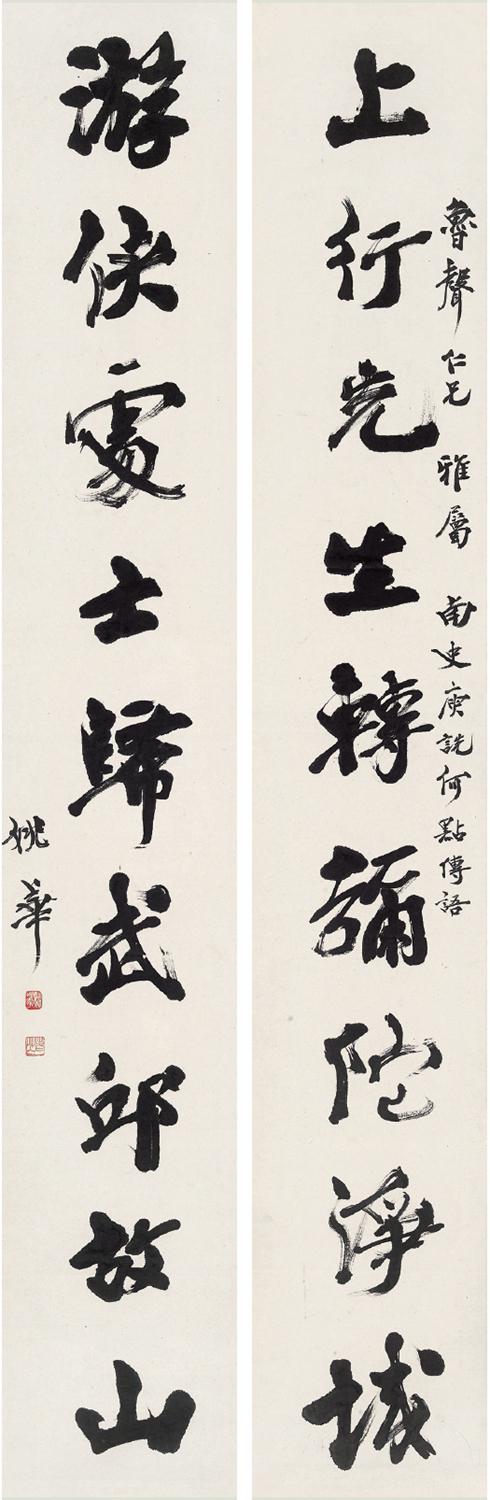 魯聲仁兄雅屬 南史庾詵何點傳語
上行先生轉彌陀淨域
游俠處士歸武邱故山
姚華